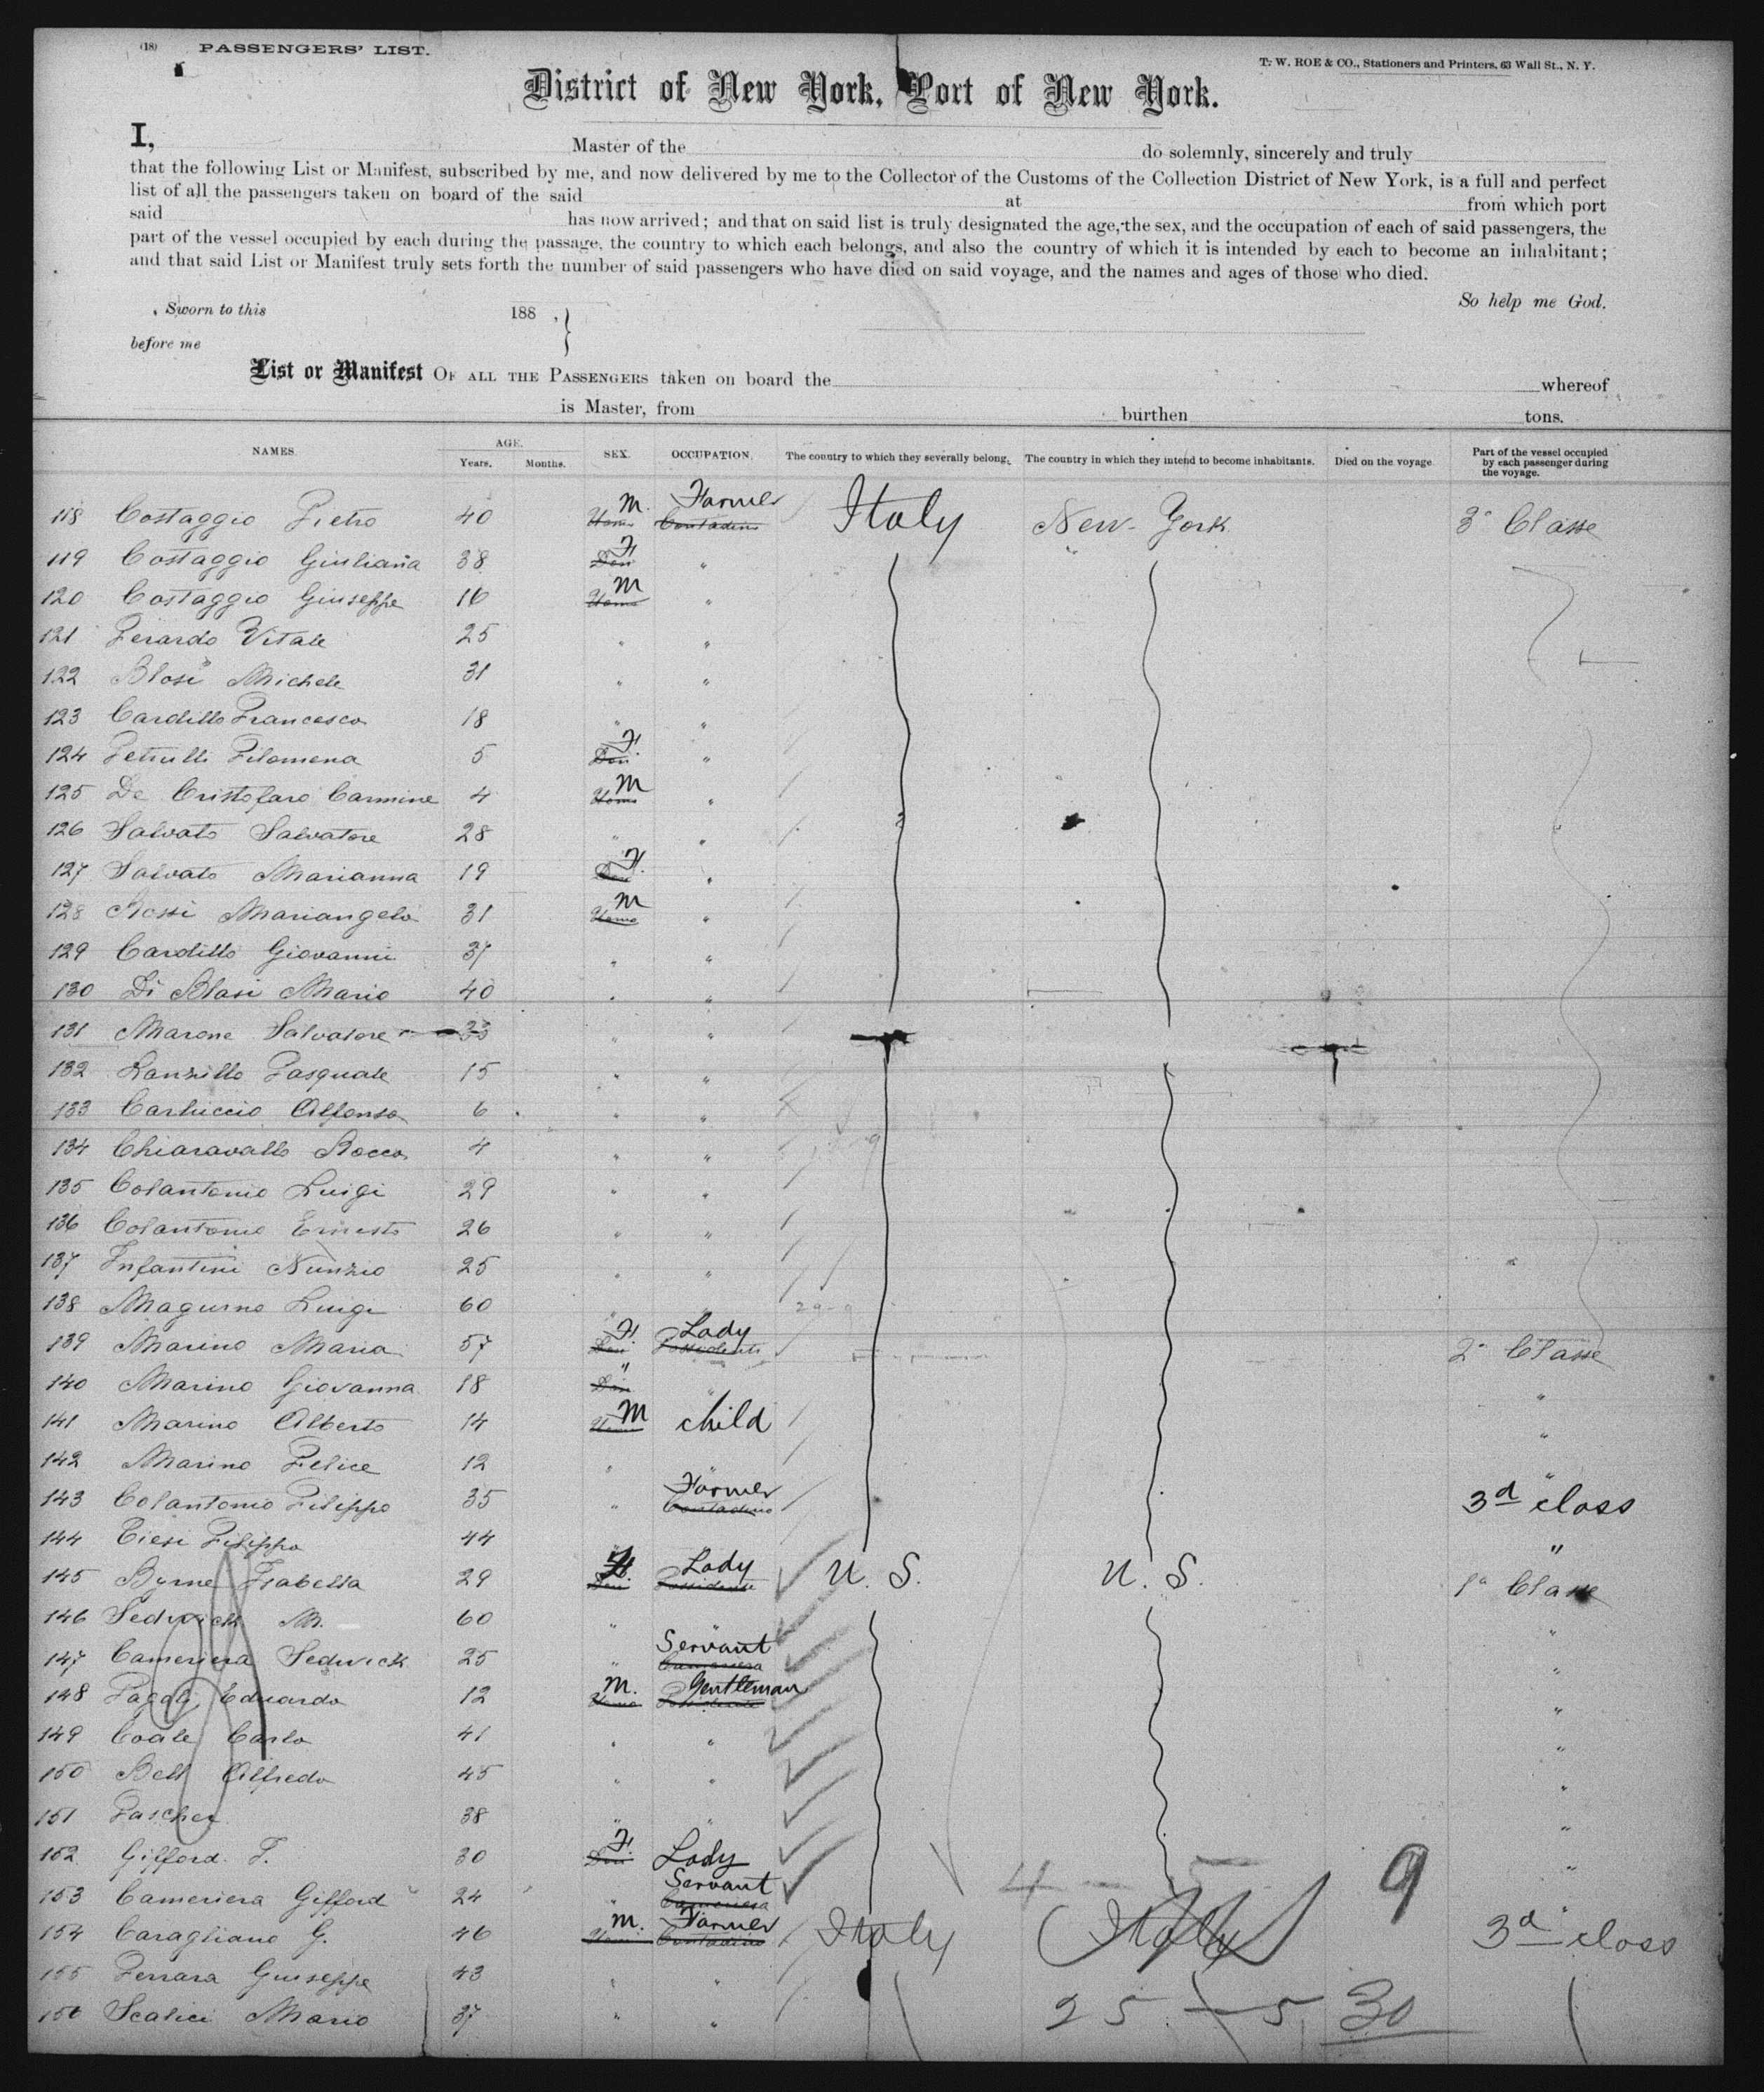 (18) PASSENGERS' LIST.
T. W. ROE & CO., Stationers and Printers, 63 Wall St., N. Y.
District of New York, Port of New York.
I, Master of the do solemnly, sincerely and truly
that the following List or Manifest, subscribed by me, and now delivered by me to the Collector of the Customs of the Collection District of New York, is a full and perfect
list of all the passengers taken on board of the said at from which port
said has now arrived; and that on said list is truly designated the age, the sex, and the occupation of each of said passengers, the
part of the vessel occupied by each during the passage, the country to which each belongs, and also the country of which it is intended by each to become an inhabitant;
and that said List or Manifest truly sets forth the number of said passengers who have died on said voyage, and the names and ages of those who died.
So help me God.
Sworn to this 188 , }
before me
List or Manifest OF ALL THE PASSENGERS taken on board the whereof
is Master, from burthen tons.
NAMES. AGE. Years. Months. SEX. OCCUPATION. The country to which they severally belong. The country in which they intend to become inhabitants. Died on the voyage. Part of the vessel occupied by each passenger during the voyage.
118 Costaggio Pietro 40 M. Uomo Farmer Contadino Italy New-York 3a Classe
119 Costaggio Giuliana 38 F. Don "
120 Costaggio Giuseppe 16 M Uomo "
121 Perardo Vitale 25 " "
122 Blosi Michele 31 " "
123 Cardillo Francesco 18 " "
124 Petrulli Filomena 5 F. Don "
125 De Cristofaro Carmine 4 M Uomo "
126 Salvato Salvatore 28 " "
127 Salvato Marianna 19 F. Don "
128 Rossi Mariangelo 31 M Uomo "
129 Cardillo Giovanni 37 " "
130 Di Blasi Mario 40 " "
131 Marone Salvatore 33 " "
132 Lanzillo Pasquale 15 " "
133 Carluccio Alfonso 6 " "
134 Chiaravallo Rocco 4 " "
135 Colantonio Luigi 29 " "
136 Colantonio Ernesto 26 " "
137 Infantini Nunzio 25 " "
138 Magurno Luigi 60 " "
139 Marino Maria 57 F. Don Lady Possidente 2a Classe
140 Marino Giovanna 18 " Don " "
141 Marino Alberto 14 M Uomo child "
142 Marino Felice 12 " " "
143 Colantonio Filippo 35 " Farmer Contadino 3d class
144 Tiesi Filippo 44 " "
145 Byrne Isabella 29 F. Don Lady Possidente U. S. U. S. 1a Classe
146 Sedwick M. 60 " " "
147 Cameriera Sedwick 25 " Servant Cameriera "
148 Eduardo 12 M. Uomo Gentleman Possidente "
149 Coale Carlo 41 " " "
150 Bell Alfredo 45 " " "
151 Pascher 38 " " "
152 Gifford F. 30 F. Don Lady "
153 Cameriera Gifford 24 " Servant Cameriera 4 - 5 9
154 Caragliano G. 46 M. Uomo Farmer Contadino Italy Italy 3d class
155 Ferrara Giuseppe 43 " "
156 Scalici Mario 37 " " 25 - 5 30